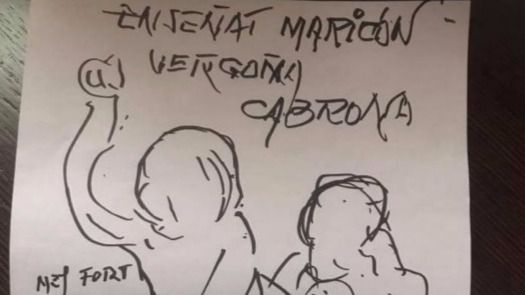 ENSENAT MARICÓN
VERGOÑA
CABRONA
MÉS FORT